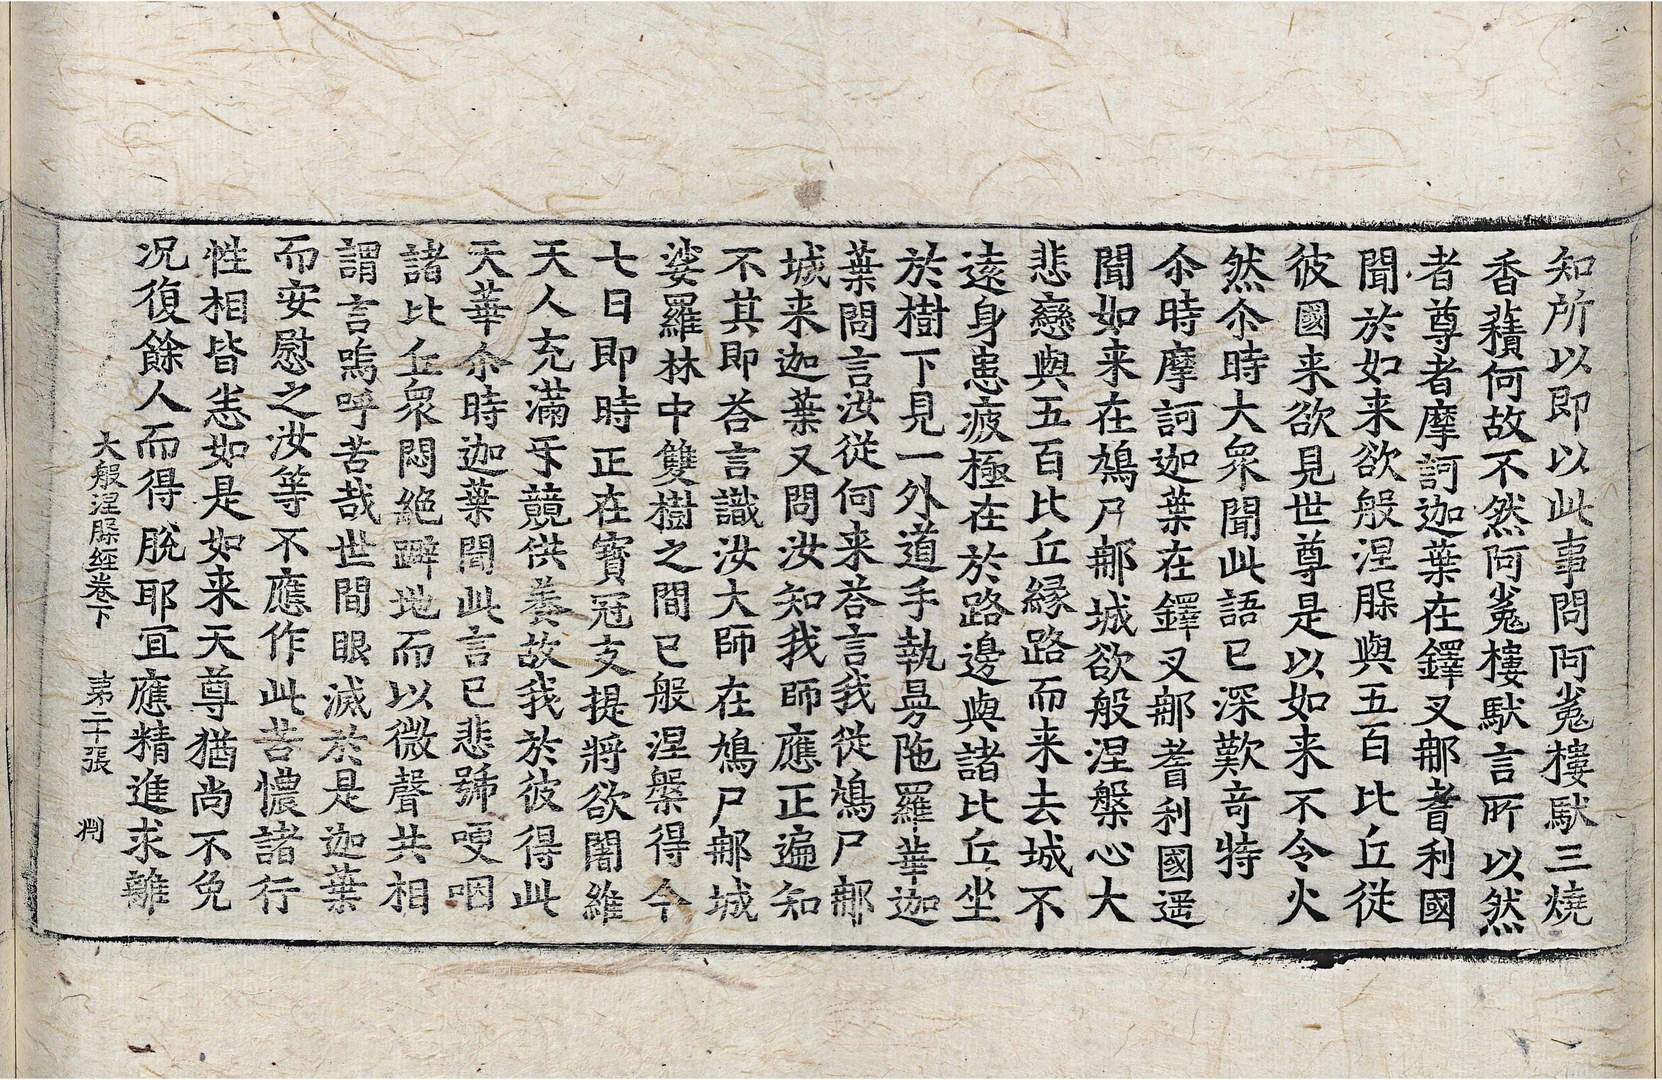 知所以即以此事問阿㝹樓馱三燒
香𧂐何故不然阿㝹樓馱言所以然
者尊者摩訶迦葉在鐸叉那耆利國
聞於如来欲般涅槃與五百比丘從
彼國来欲見世尊是以如来不令火
然尒時大衆聞此語已深歎奇特
尒時摩訶迦葉在鐸叉那耆利國遥
聞如来在鳩尸那城欲般涅槃心大
悲戀與五百比丘緣路而来去城不
遠身患疲極在於路邊與諸比丘坐
於樹下見一外道手執曼陁羅華迦
葉問言汝從何来荅言我從鳩尸那
城来迦葉又問汝知我師應正遍知
不其即荅言識汝大師在鳩尸那城
娑羅林中雙樹之間已般涅槃得今
七日即時正在寶冠支提將欲闍維
天人充滿乎競供養故我於彼得此
天華尒時迦葉聞此言已悲號哽咽
諸比丘衆悶絶躃地而以微聲共相
謂言嗚呼苦哉世間眼滅於是迦葉
而安慰之汝等不應作此苦憹諸行
性相皆悉如是如来天尊猶尚不免
况復餘人而得脫耶宜應精進求離
大般涅槃經卷下 苐二十張 判